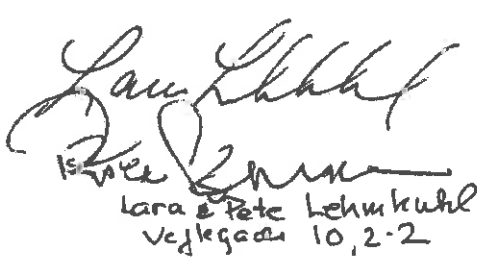 Lara Lehmkuhl
Pete
Lara & Pete Lehmkuhl
Vejlegade 10, 2-2